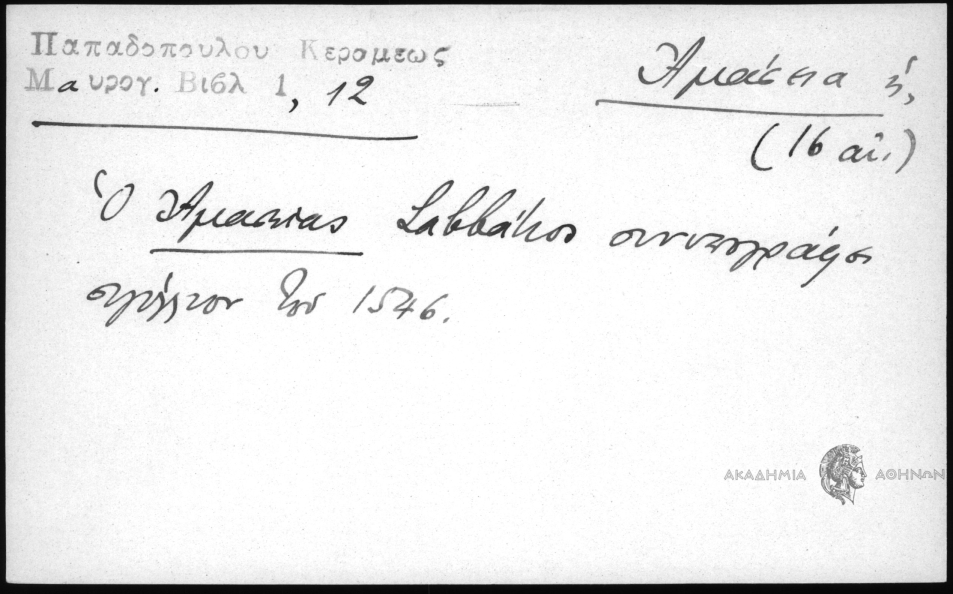 Παπαδοπουλου Κεραμεως
Μαυρογ. Βιβλ 1, 12
Ἀμάσεια ἡ,
(16 αἰ.)
Ὁ Ἀμασείας Σαββάτιος συνυπογράφει
σιγίλλιον τοῦ 1546.
ΑΚΑΔΗΜΙΑ ΑΘΗΝΩΝ